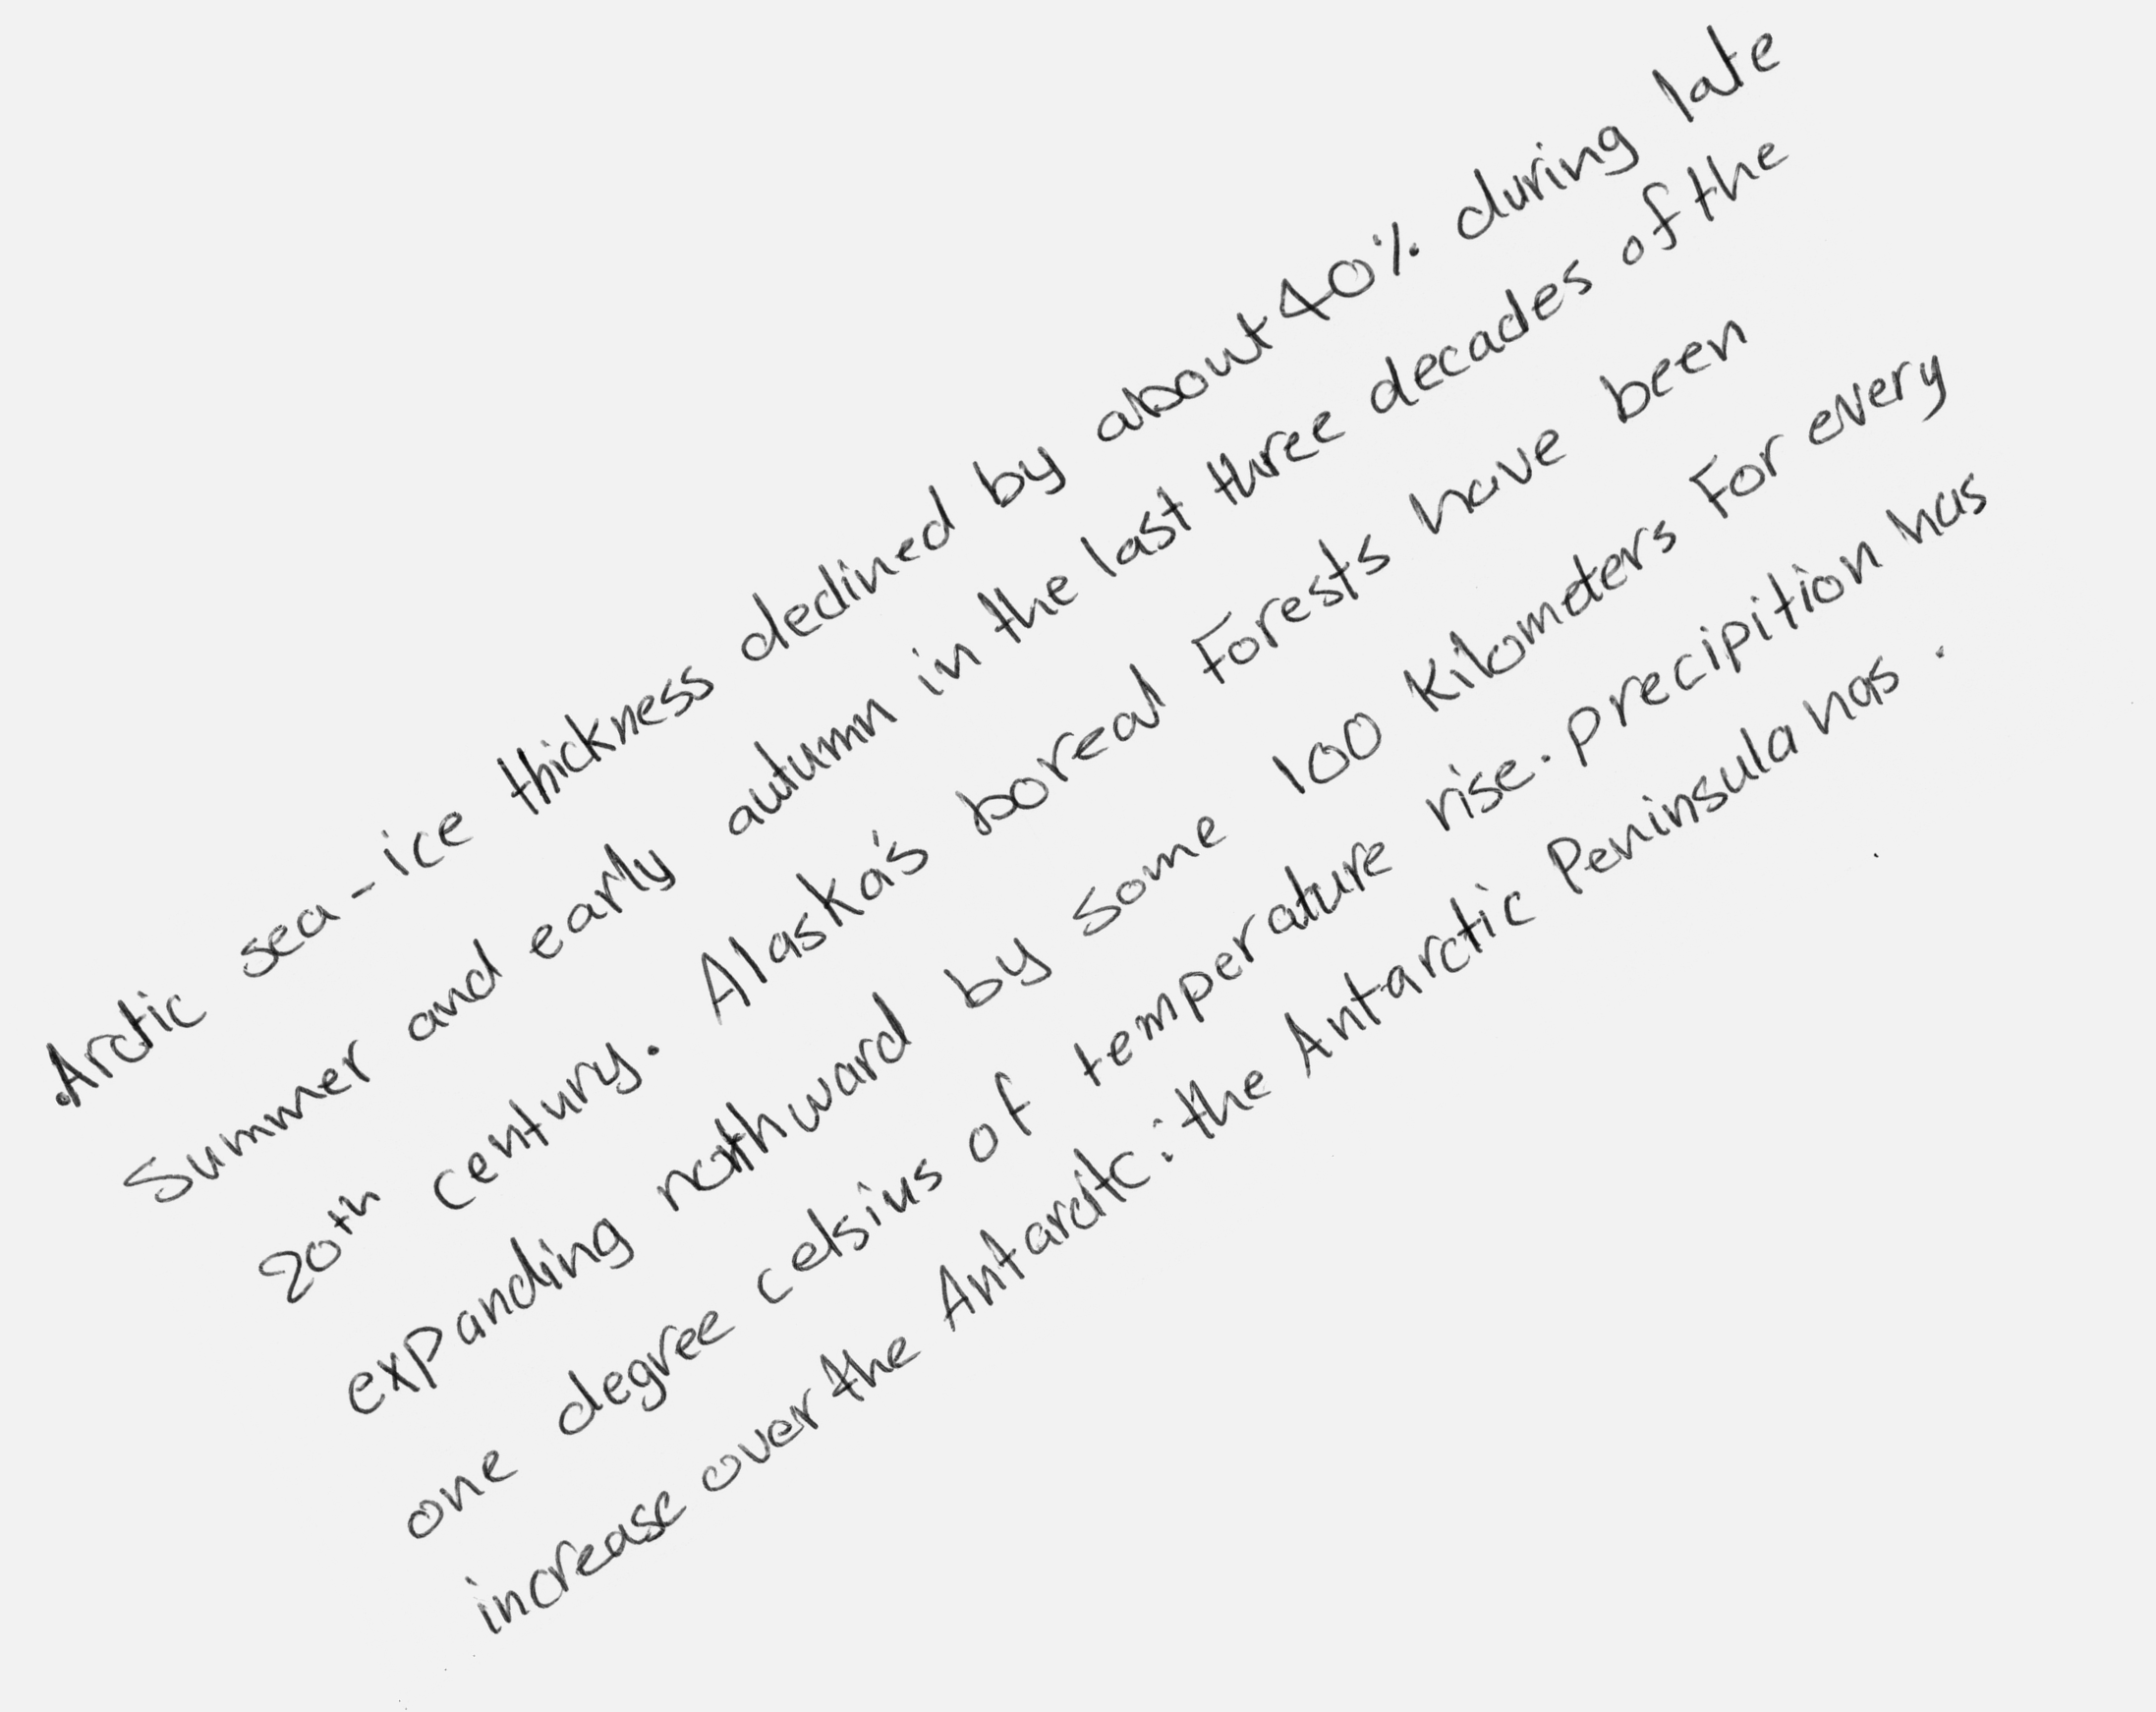 Arctic sea-ice thickness declined by about 40% during late
Summer and early autumn in the last three decades of the
20th century. Alaska's boreal Forests have been
expanding northward by some 100 Kilometers For every
one degree celsius of temperature rise. Precipition has
increase over the Antarcitc: the Antarctic Peninsula has.